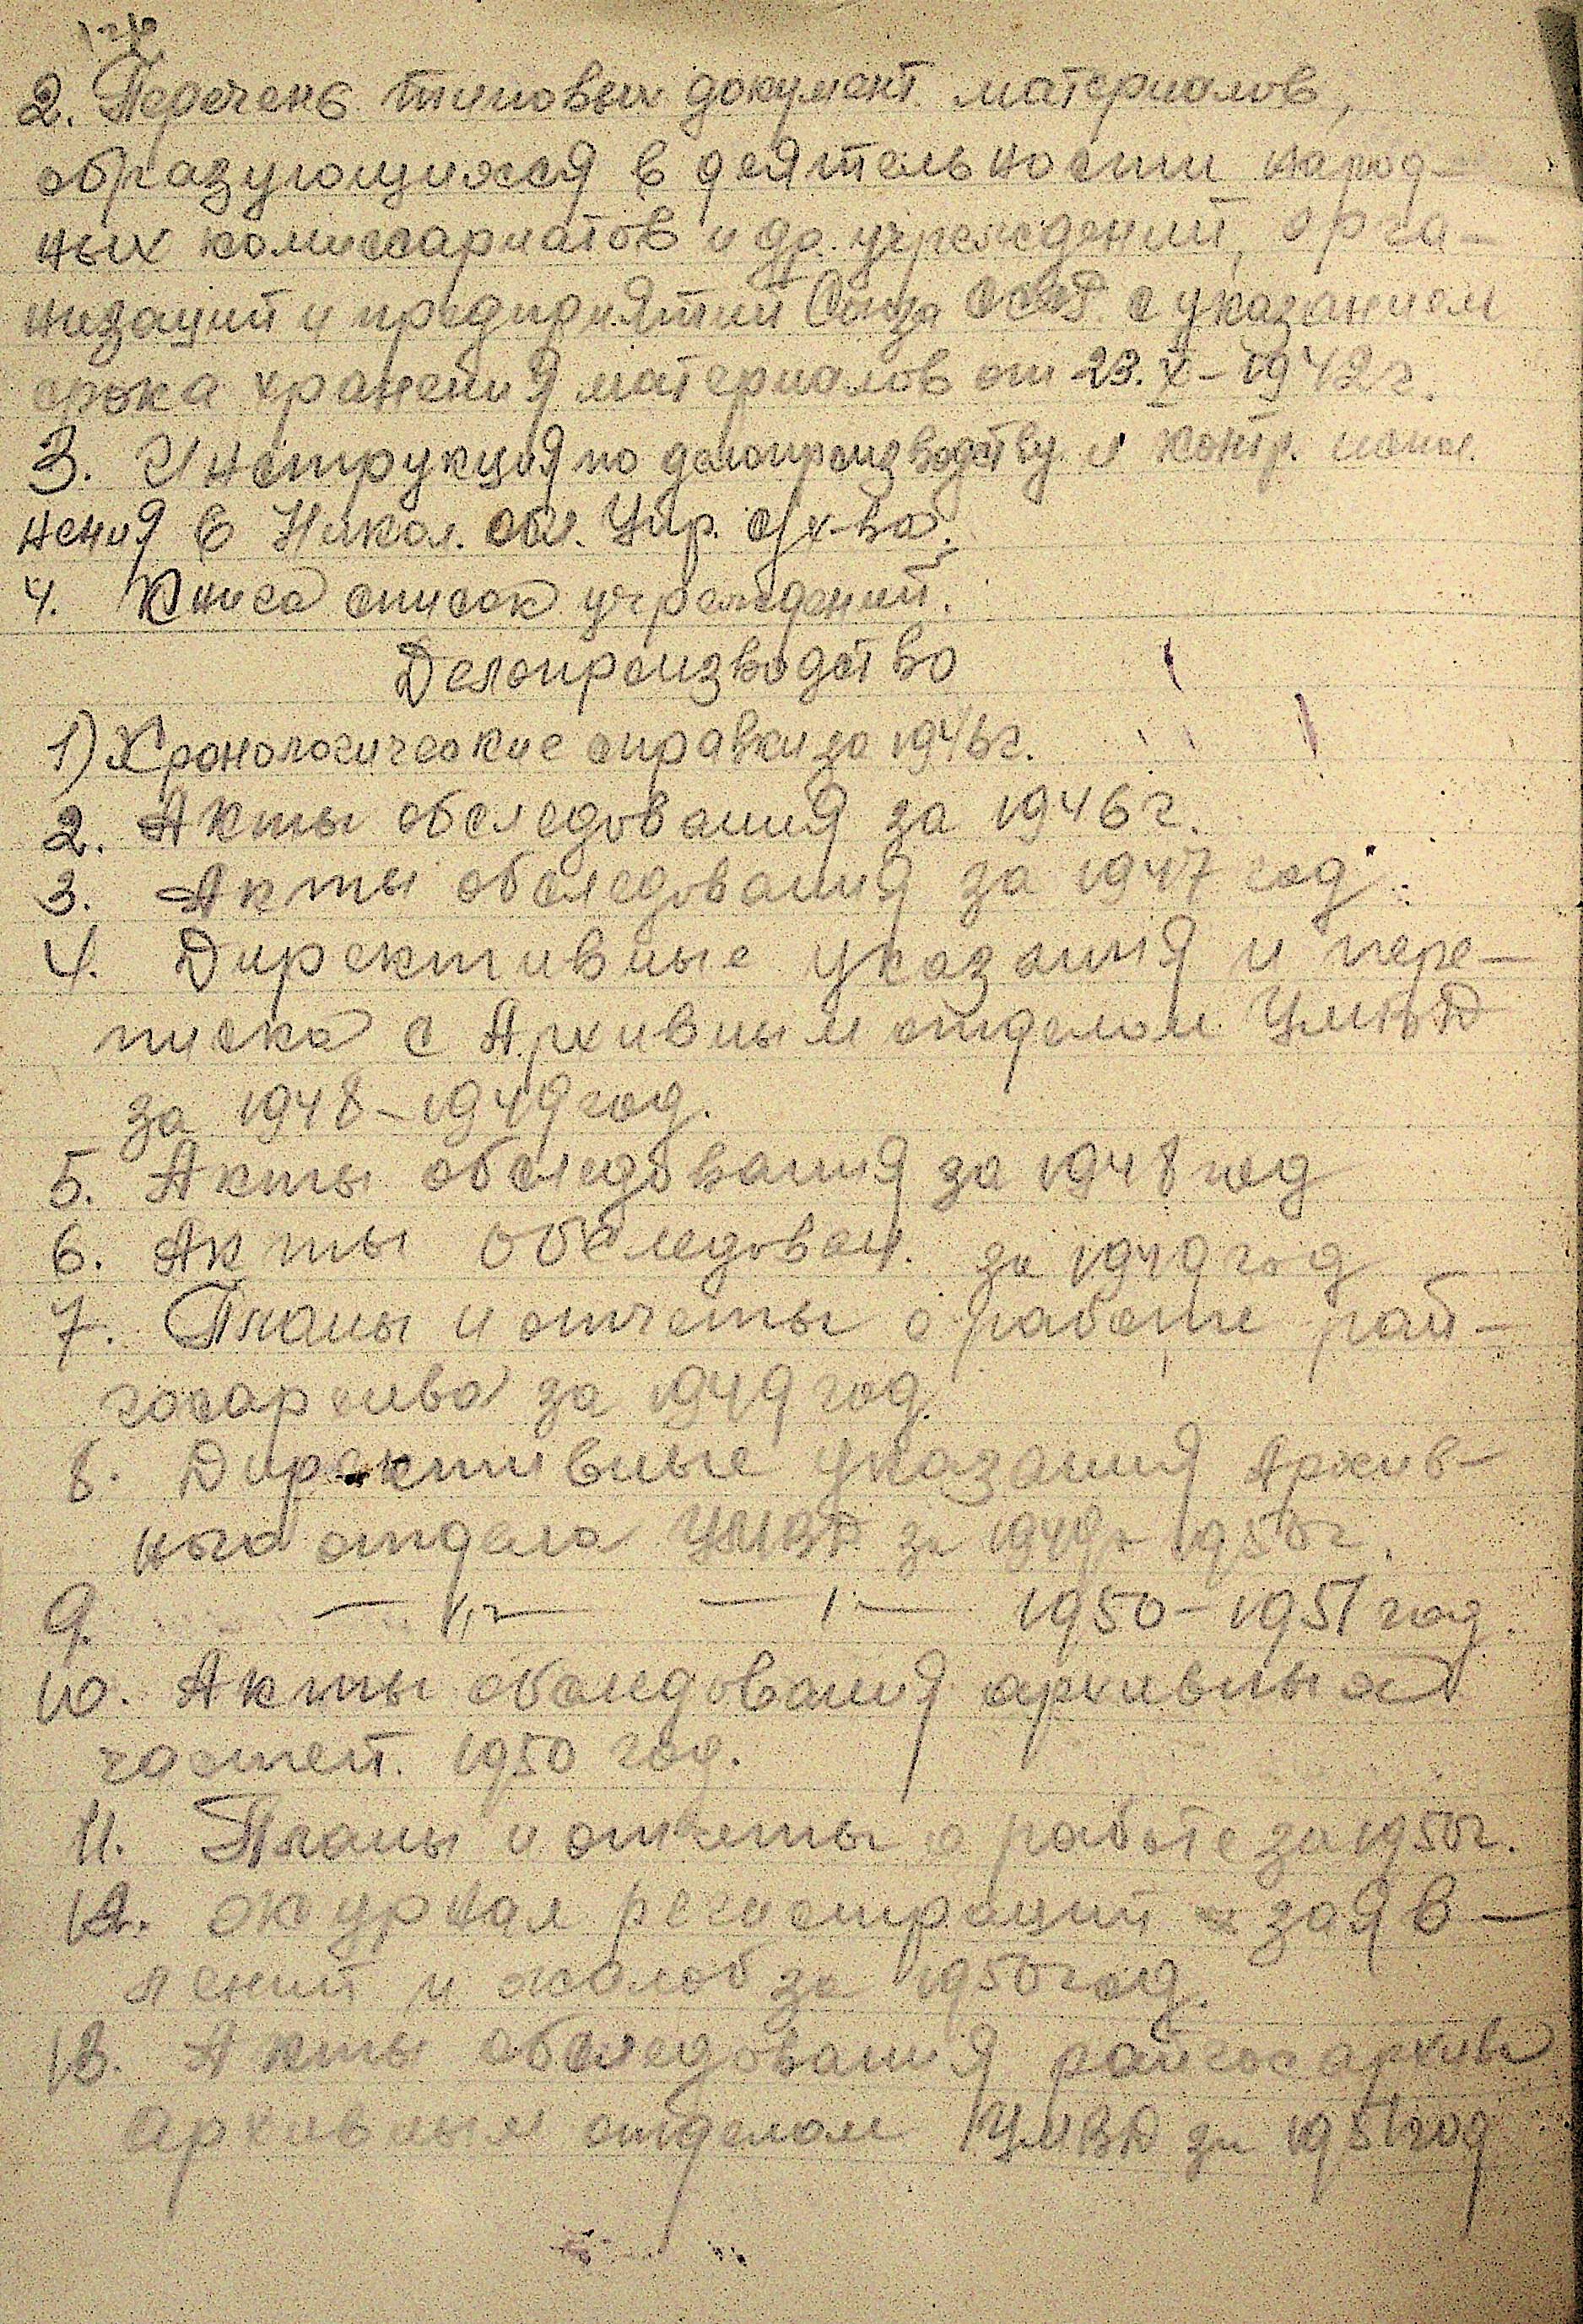 2. Перечень типовых документ. материалов,
образующихся в деятельности народ-
ных комиссариатов и др. учреждений, орга-
низаций и предприятий Союза ССР. с указанием
срока хранения материалов от 23.X-1942г.
3. Инструкция по делопроизводству и контр. испол.
нения в Никол. обл. Упр. с/х-ва.
4. Книга список учреждений.
Делопроизводство
1) Хронологические справки за 1946г.
2. Акты обследования за 1946г.
3. Акты обследования за 1947 год.
4. Директивные указания и пере-
писка с Архивным отделом УМВД
за 1948-1949 год.
5. Акты обследования за 1948 год
6. Акты обследован. за 1949 год
7. Планы и отчеты о работе рай-
госархива за 1949 год.
8. Директивные указания Архив-
ного отдела УМВД за 1949-1950г.
9. —„— —„— 1950-1951 год.
10. Акты обследования архивных
частей. 1950 год.
11. Планы и отчеты о работе за 1950г.
12. Журнал регистраций заяв-
лений и жалоб за 1950 год.
13. Акты обследования райгосархива
Архивным отделом УМВД за 1951 год